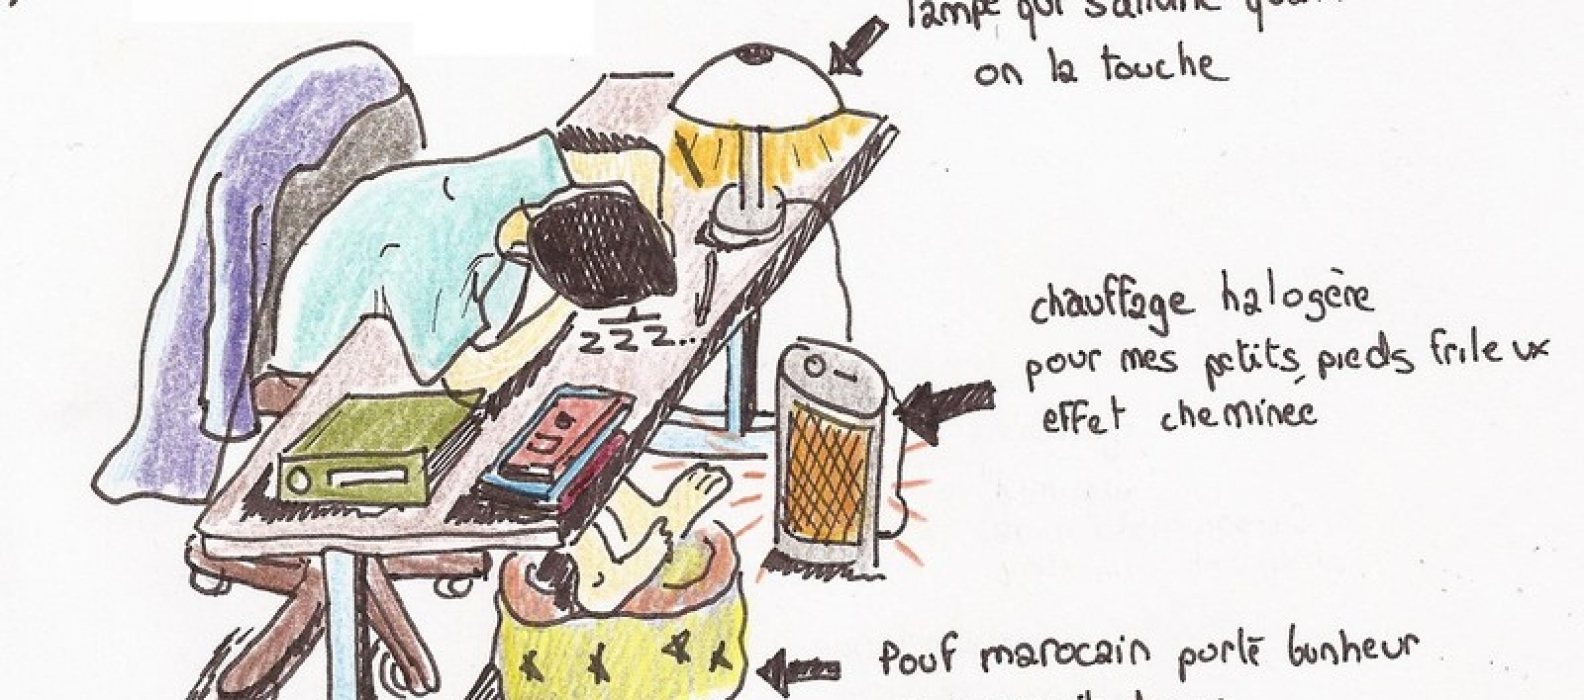 lampe qui s'allume
on la touche
zzz...
chauffage halogère
pour mes petits pieds frileux
effet cheminée
Pouf marocain porte bonheur